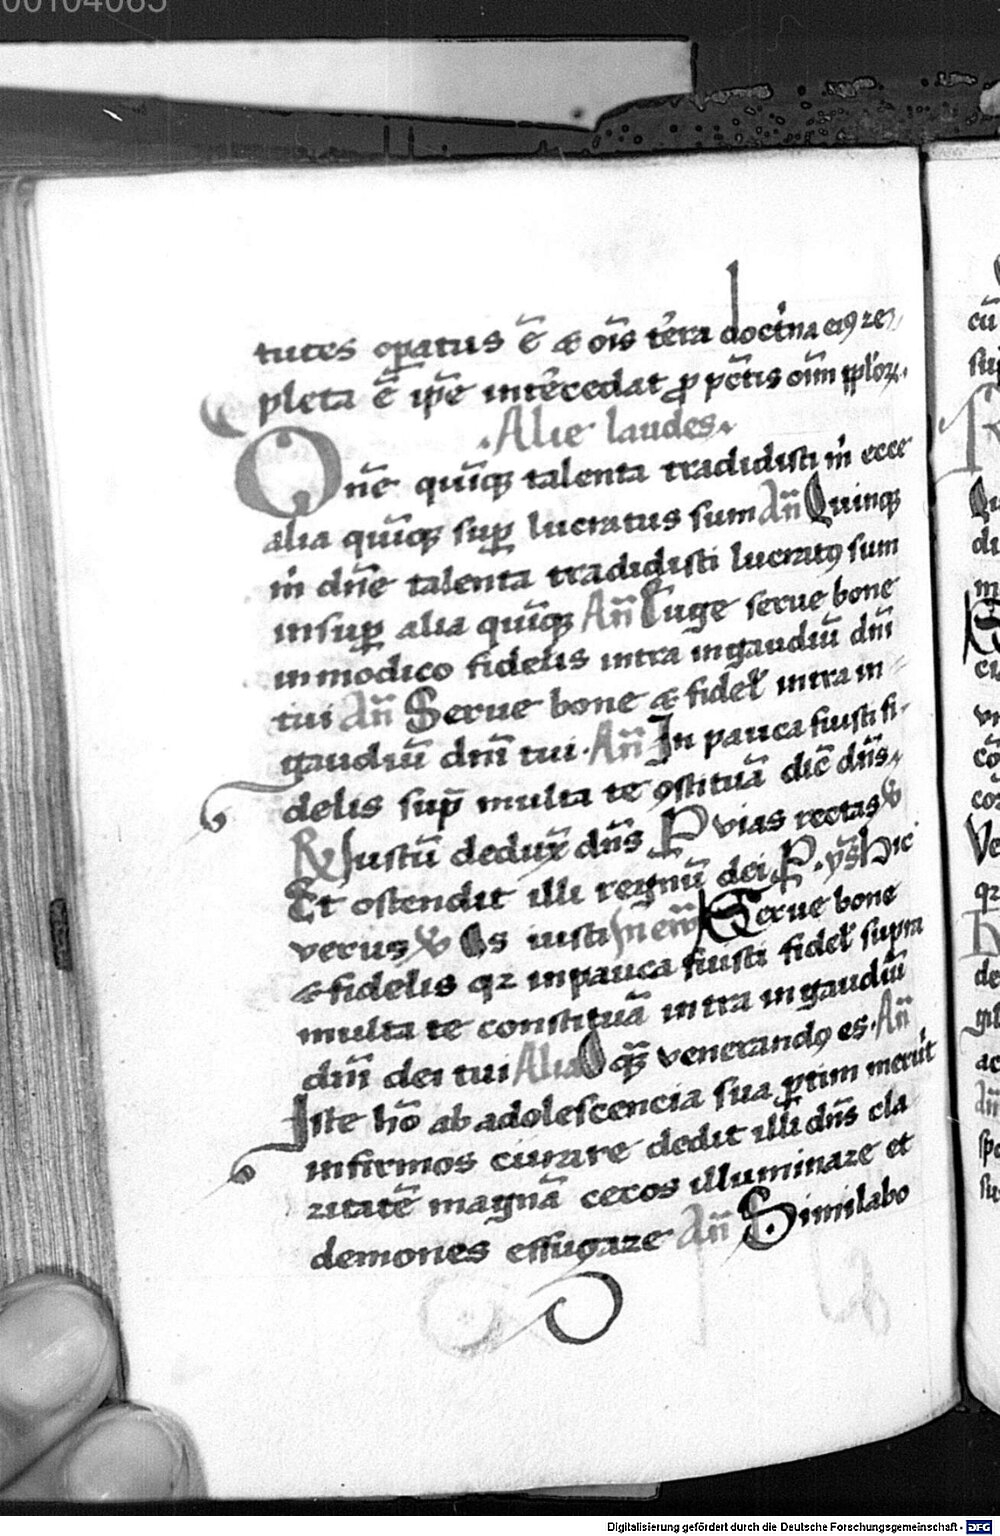 00104065
tutes oꝑatus ē ⁊ oı̄s t̄era doct'na eiꝰ re-
pleta ē ip̄e int̄ecedat ꝓ pc̄tis oı̄m pp̄lorꝫ.
Alie laudes.
One quı̄qꝫ talenta tradidisti m' ecce
alia quı̄qꝫ suꝑ lucratus sum An̄ Quinqꝫ
m' dn̄e talenta tradidisti lucratꝰ sum
insuꝑ alia quı̄qꝫ An̄ Euge serue bone
in modico fidelis intra in gaudiū dn̄i
tui An̄ Serue bone ⁊ fidel' intra in
gaudiū dn̄i tui. An̄ In pauca fuisti fi-
delis sup̄ multa te ꝯstituā dic̄ dn̄s.
℟ Justū dedux̄ dn̄s P vias rectas ℣
Et ostendit illi regnū dei P. ys̄ Hic
verus ℣ Os iusti In ew̄ Serue bone
⁊ fidelis qꝛ in pauca fuisti fidel' supra
multa te constituā intra in gaudiū
dn̄i dei tui Alia O qꝫ venerandꝰ es. An̄
Iste hō ab adolescencia sua ꝑtim meruit
infirmos curare dedit illi dn̄s cla
ritatē magnā cecos illuminare et
demones effugare An̄ Similabo
cū
Digitalisierung gefördert durch die Deutsche Forschungsgemeinschaft - DFG